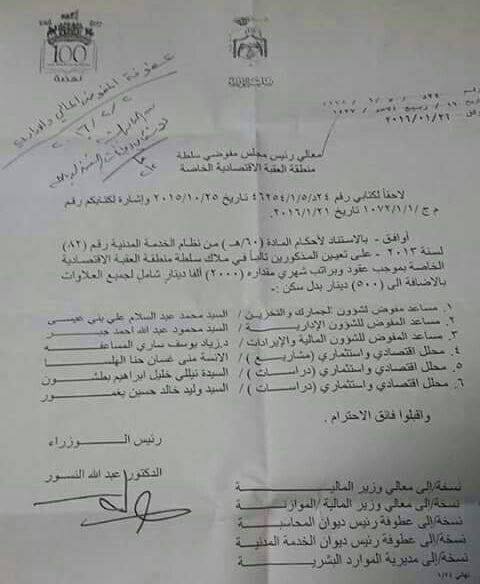 100
رئاسة الوزراء
عطوفة المفوض المالي والاداري
٢٠١٦/٠١/٢٦
معالي رئيس مجلس مفوضي سلطة
منطقة العقبة الاقتصادية الخاصة
لاحقاً لكتابي رقم ٢٤د/٤٦٢٥٤/١/٥ تاريخ ٢٠١٥/١٠/٢٥ وإشارة لكتابكم رقم
م ج/١٠٧٢/١/١ تاريخ ٢٠١٦/١/٢١ .
أوافق - بالاستناد لأحكام المادة (٦٠/هـ) من نظام الخدمة المدنية رقم (٨٢)
لسنة ٢٠١٣ - على تعيين المذكورين تالياً في ملاك سلطة منطقة العقبة الاقتصادية
الخاصة بموجب عقود وبراتب شهري مقداره (٢٠٠٠) ألفا دينار شامل لجميع العلاوات
بالاضافة الى (٥٠٠) دينار بدل سكن :-
١. مساعد مفوض لشؤون الجمارك والتخزين / السيد محمد عبد السلام علي بني عيسى
٢. مساعد المفوض للشؤون الإدارية / السيد محمود عبد الله احمد جبر
٣. مساعد المفوض للشؤون المالية والإيرادات / د.زياد يوسف ساري المساعفه
٤. محلل اقتصادي واستثماري (مشاريع) / الانسة منى غسان حنا الهلسا
٥. محلل اقتصادي واستثماري (دراسات) / السيدة نيللي خليل ابراهيم بطشون
٦. محلل اقتصادي واستثماري (دراسات) / السيد وليد خالد حسين يعمور
واقبلوا فائق الاحترام .
رئيس الوزراء
الدكتور عبد الله النسور
نسخة/إلى معالي وزير المالية
نسخة/إلى معالي وزير المالية / الموازنة
نسخة/إلى عطوفة رئيس ديوان المحاسبة
نسخة/إلى عطوفة رئيس ديوان الخدمة المدنية
نسخة/إلى مديرية الموارد البشرية
نهاني ١/٢٤